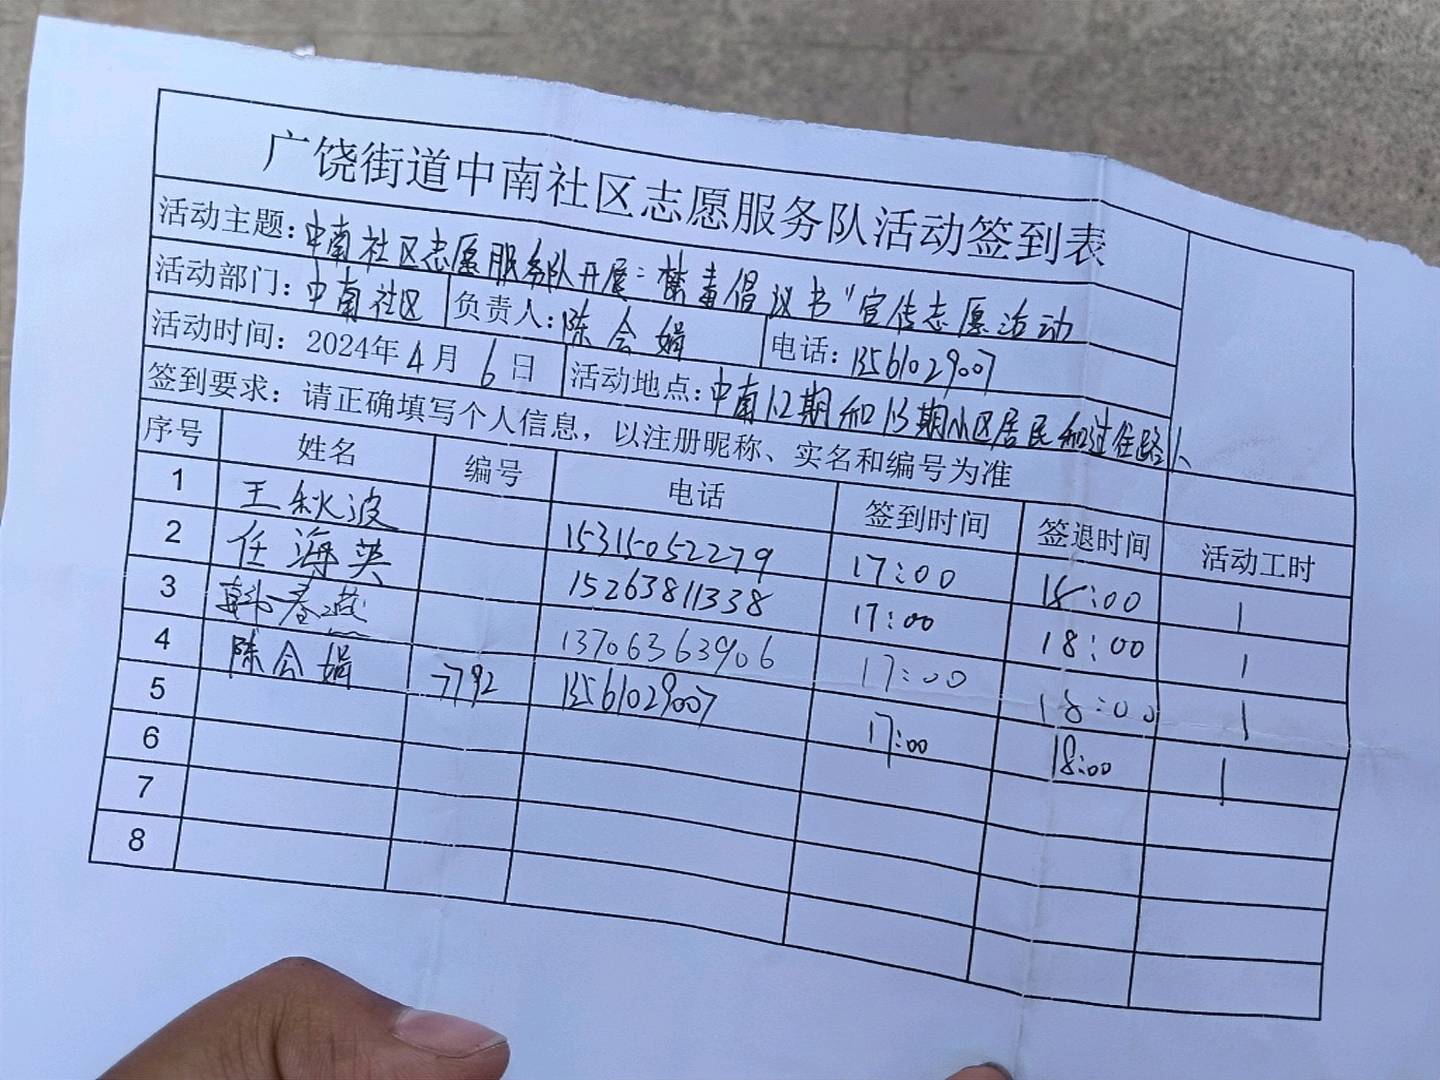 广饶街道中南社区志愿服务队活动签到表
活动主题：中南社区志愿服务队开展"禁毒倡议书"宣传志愿活动
活动部门：中南社区 负责人：陈会娟 电话：13561029007
活动时间：2024年4月6日 活动地点：中南12期和13期小区居民和过往路人
签到要求：请正确填写个人信息，以注册昵称、实名和编号为准
序号 姓名 编号 电话 签到时间 签退时间 活动工时
1 王秋波 15315052279 17:00 18:00 1
2 任海英 15263811338 17:00 18:00 1
3 韩春燕 13706363906 17:00 18:00 1
4 陈会娟 7792 13561029007 17:00 18:00 1
5
6
7
8